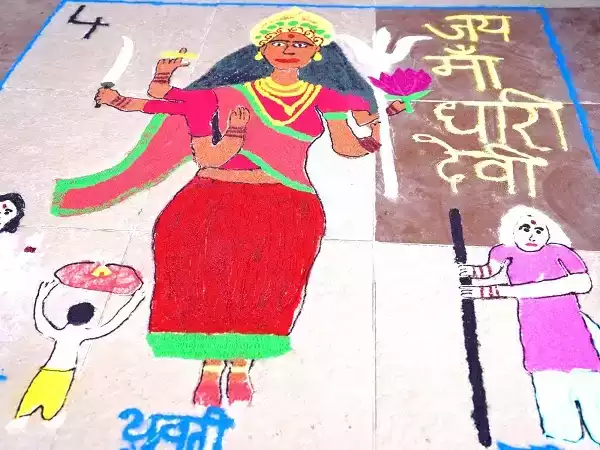 ४
जय
माँ
धारी
देवी
युवती